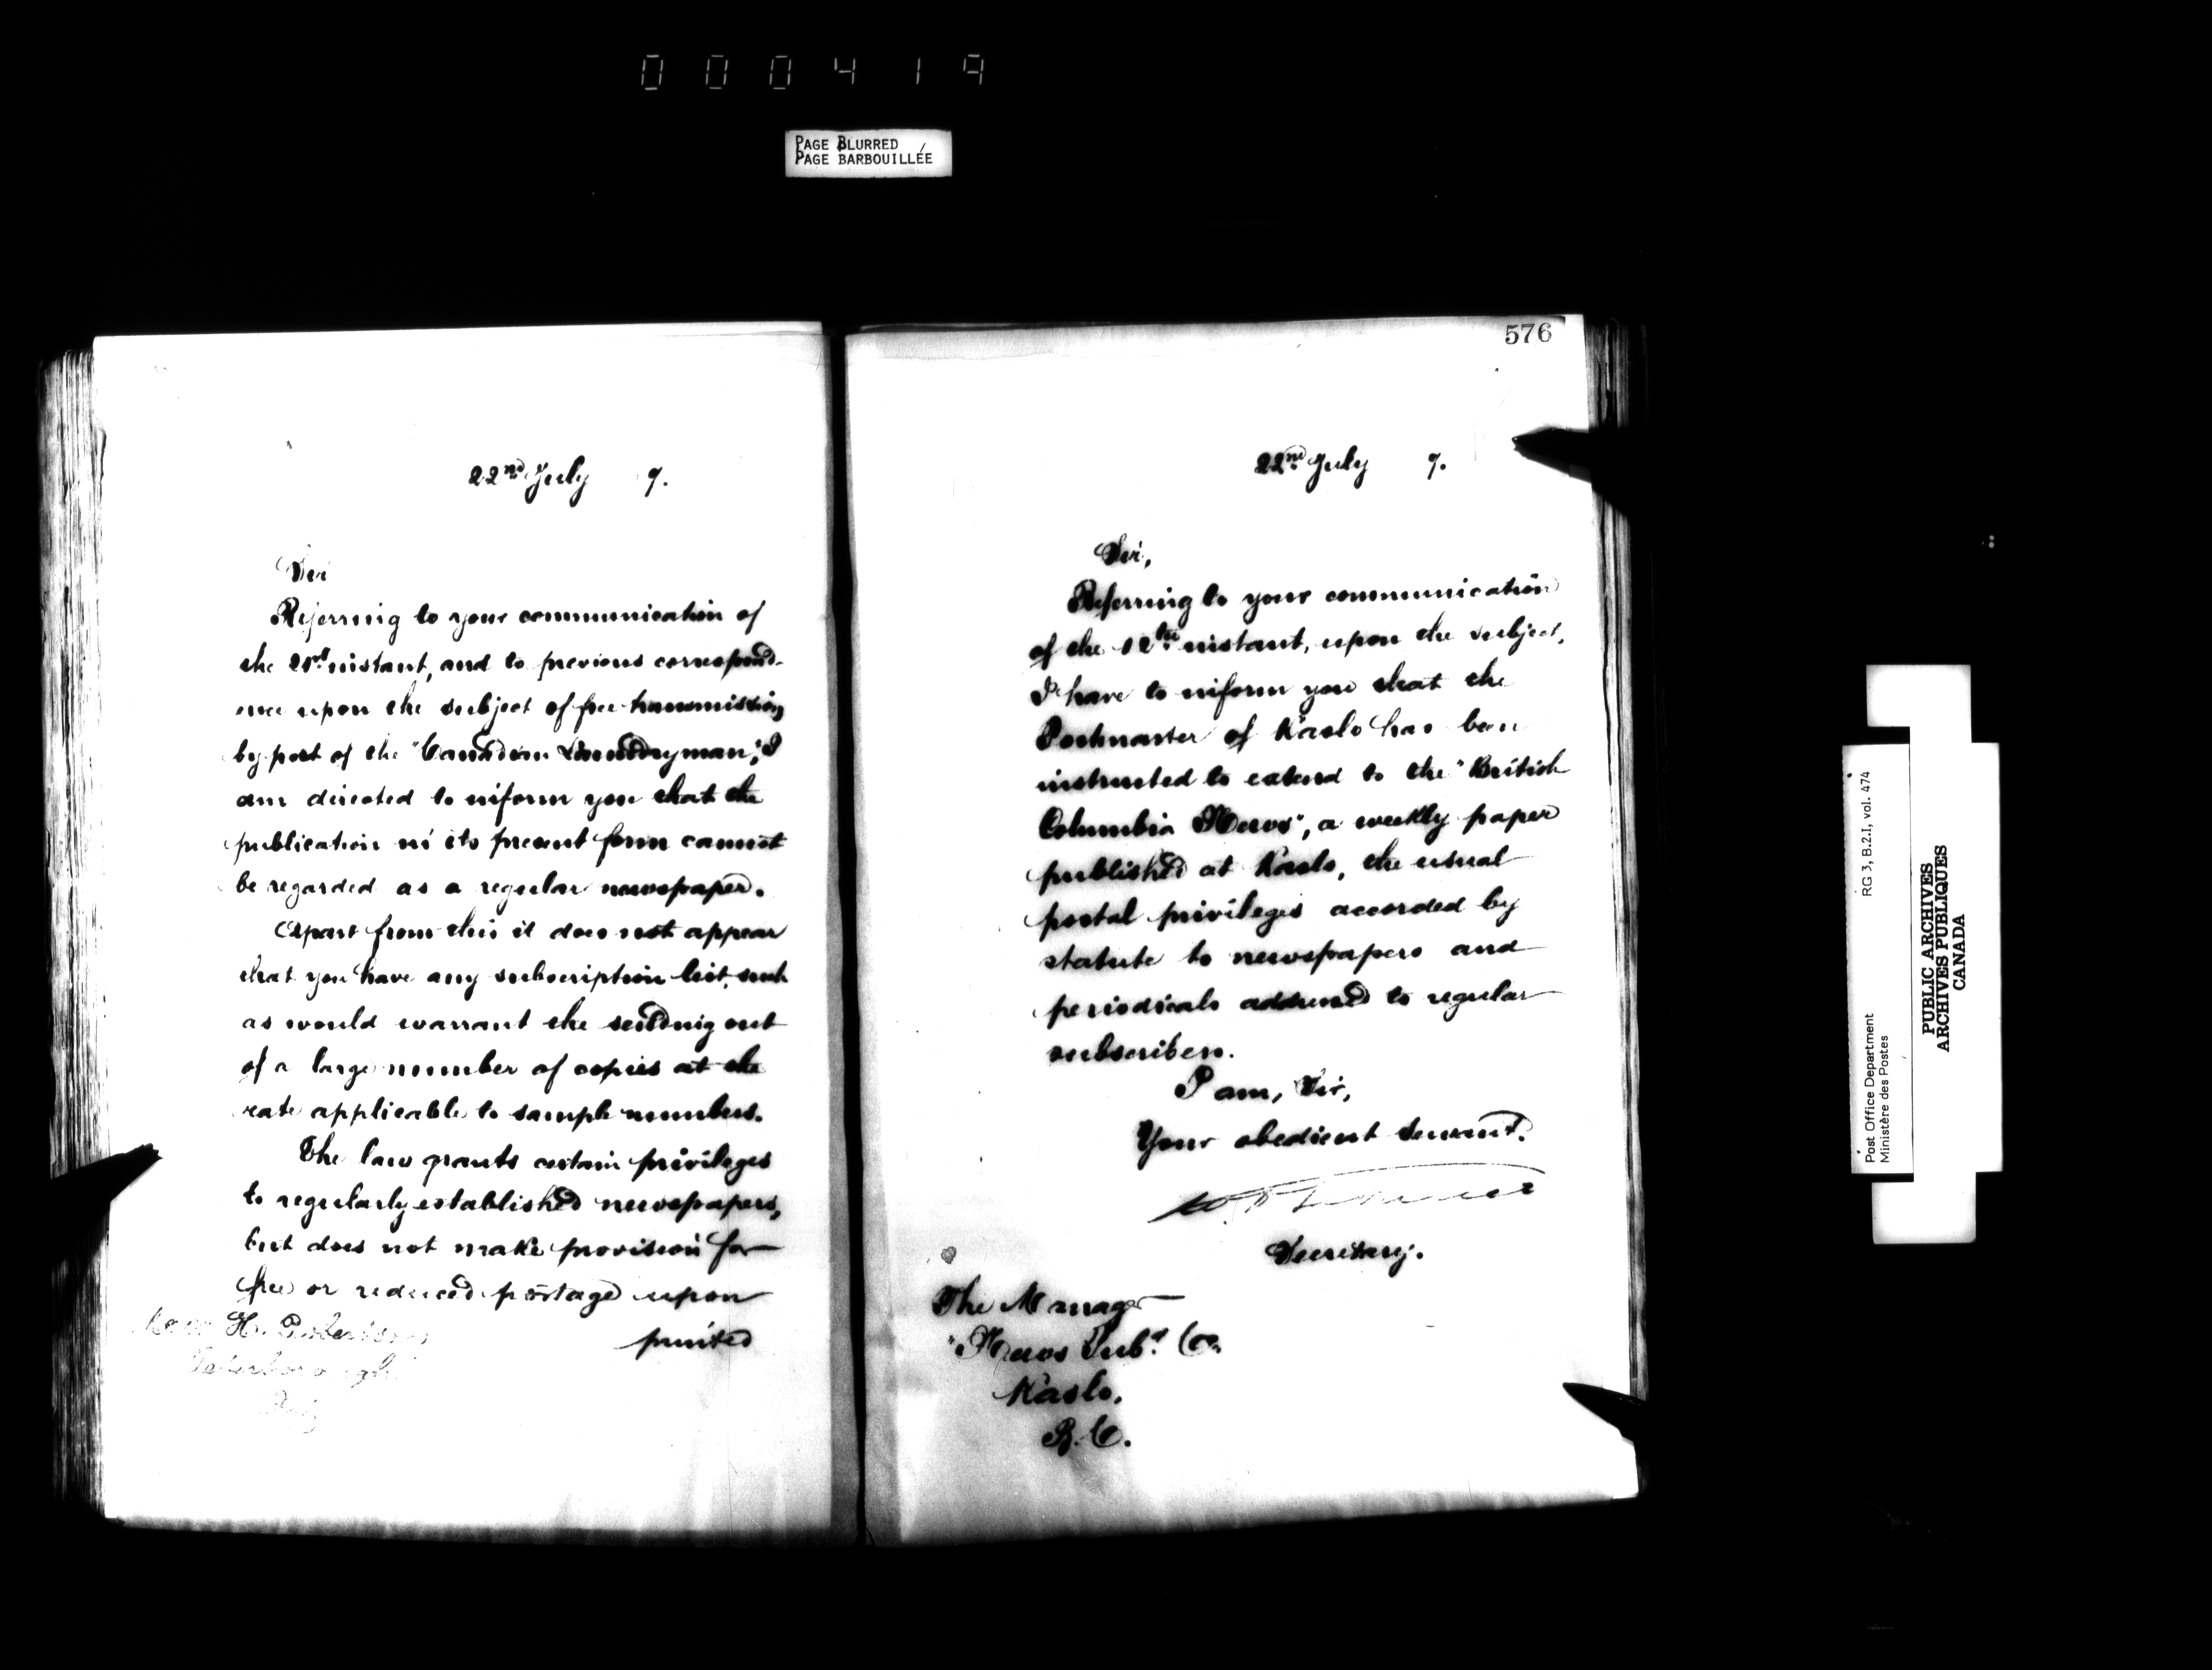 000419
PAGE BLURRED
PAGE BARBOUILLÉE
22nd July 7.
Sir
Referring to your communication of
the 21st instant, and to previous correspond-
ence upon the subject of free transmission
by post of the "Canadian Laundryman", I
am directed to inform you that the
publication in its present form cannot
be regarded as a regular newspaper.
Apart from this it does not appear
that you have any subscription list, such
as would warrant the sending out
of a large number of copies at the
rate applicable to sample numbers.
The law grants certain privileges
to regularly established newspapers,
but does not make provision for
free or reduced postage upon
printed
H. Robertson
Peterborough
576
22nd July 7.
Sir,
Referring to your communication
of the 12th instant, upon the subject,
I have to inform you that the
Postmaster of Kaslo has been
instructed to extend to the "British
Columbia News", a weekly paper
published at Kaslo, the usual
postal privileges accorded by
statute to newspapers and
periodicals addressed to regular
subscribers.
I am, Sir,
Your obedient Servant.
Secretary.
The Manager
"News Pub.g Co.
Kaslo,
B.C.
Post Office Department
Ministère des Postes
RG 3, B.2.I, vol. 474
PUBLIC ARCHIVES
ARCHIVES PUBLIQUES
CANADA